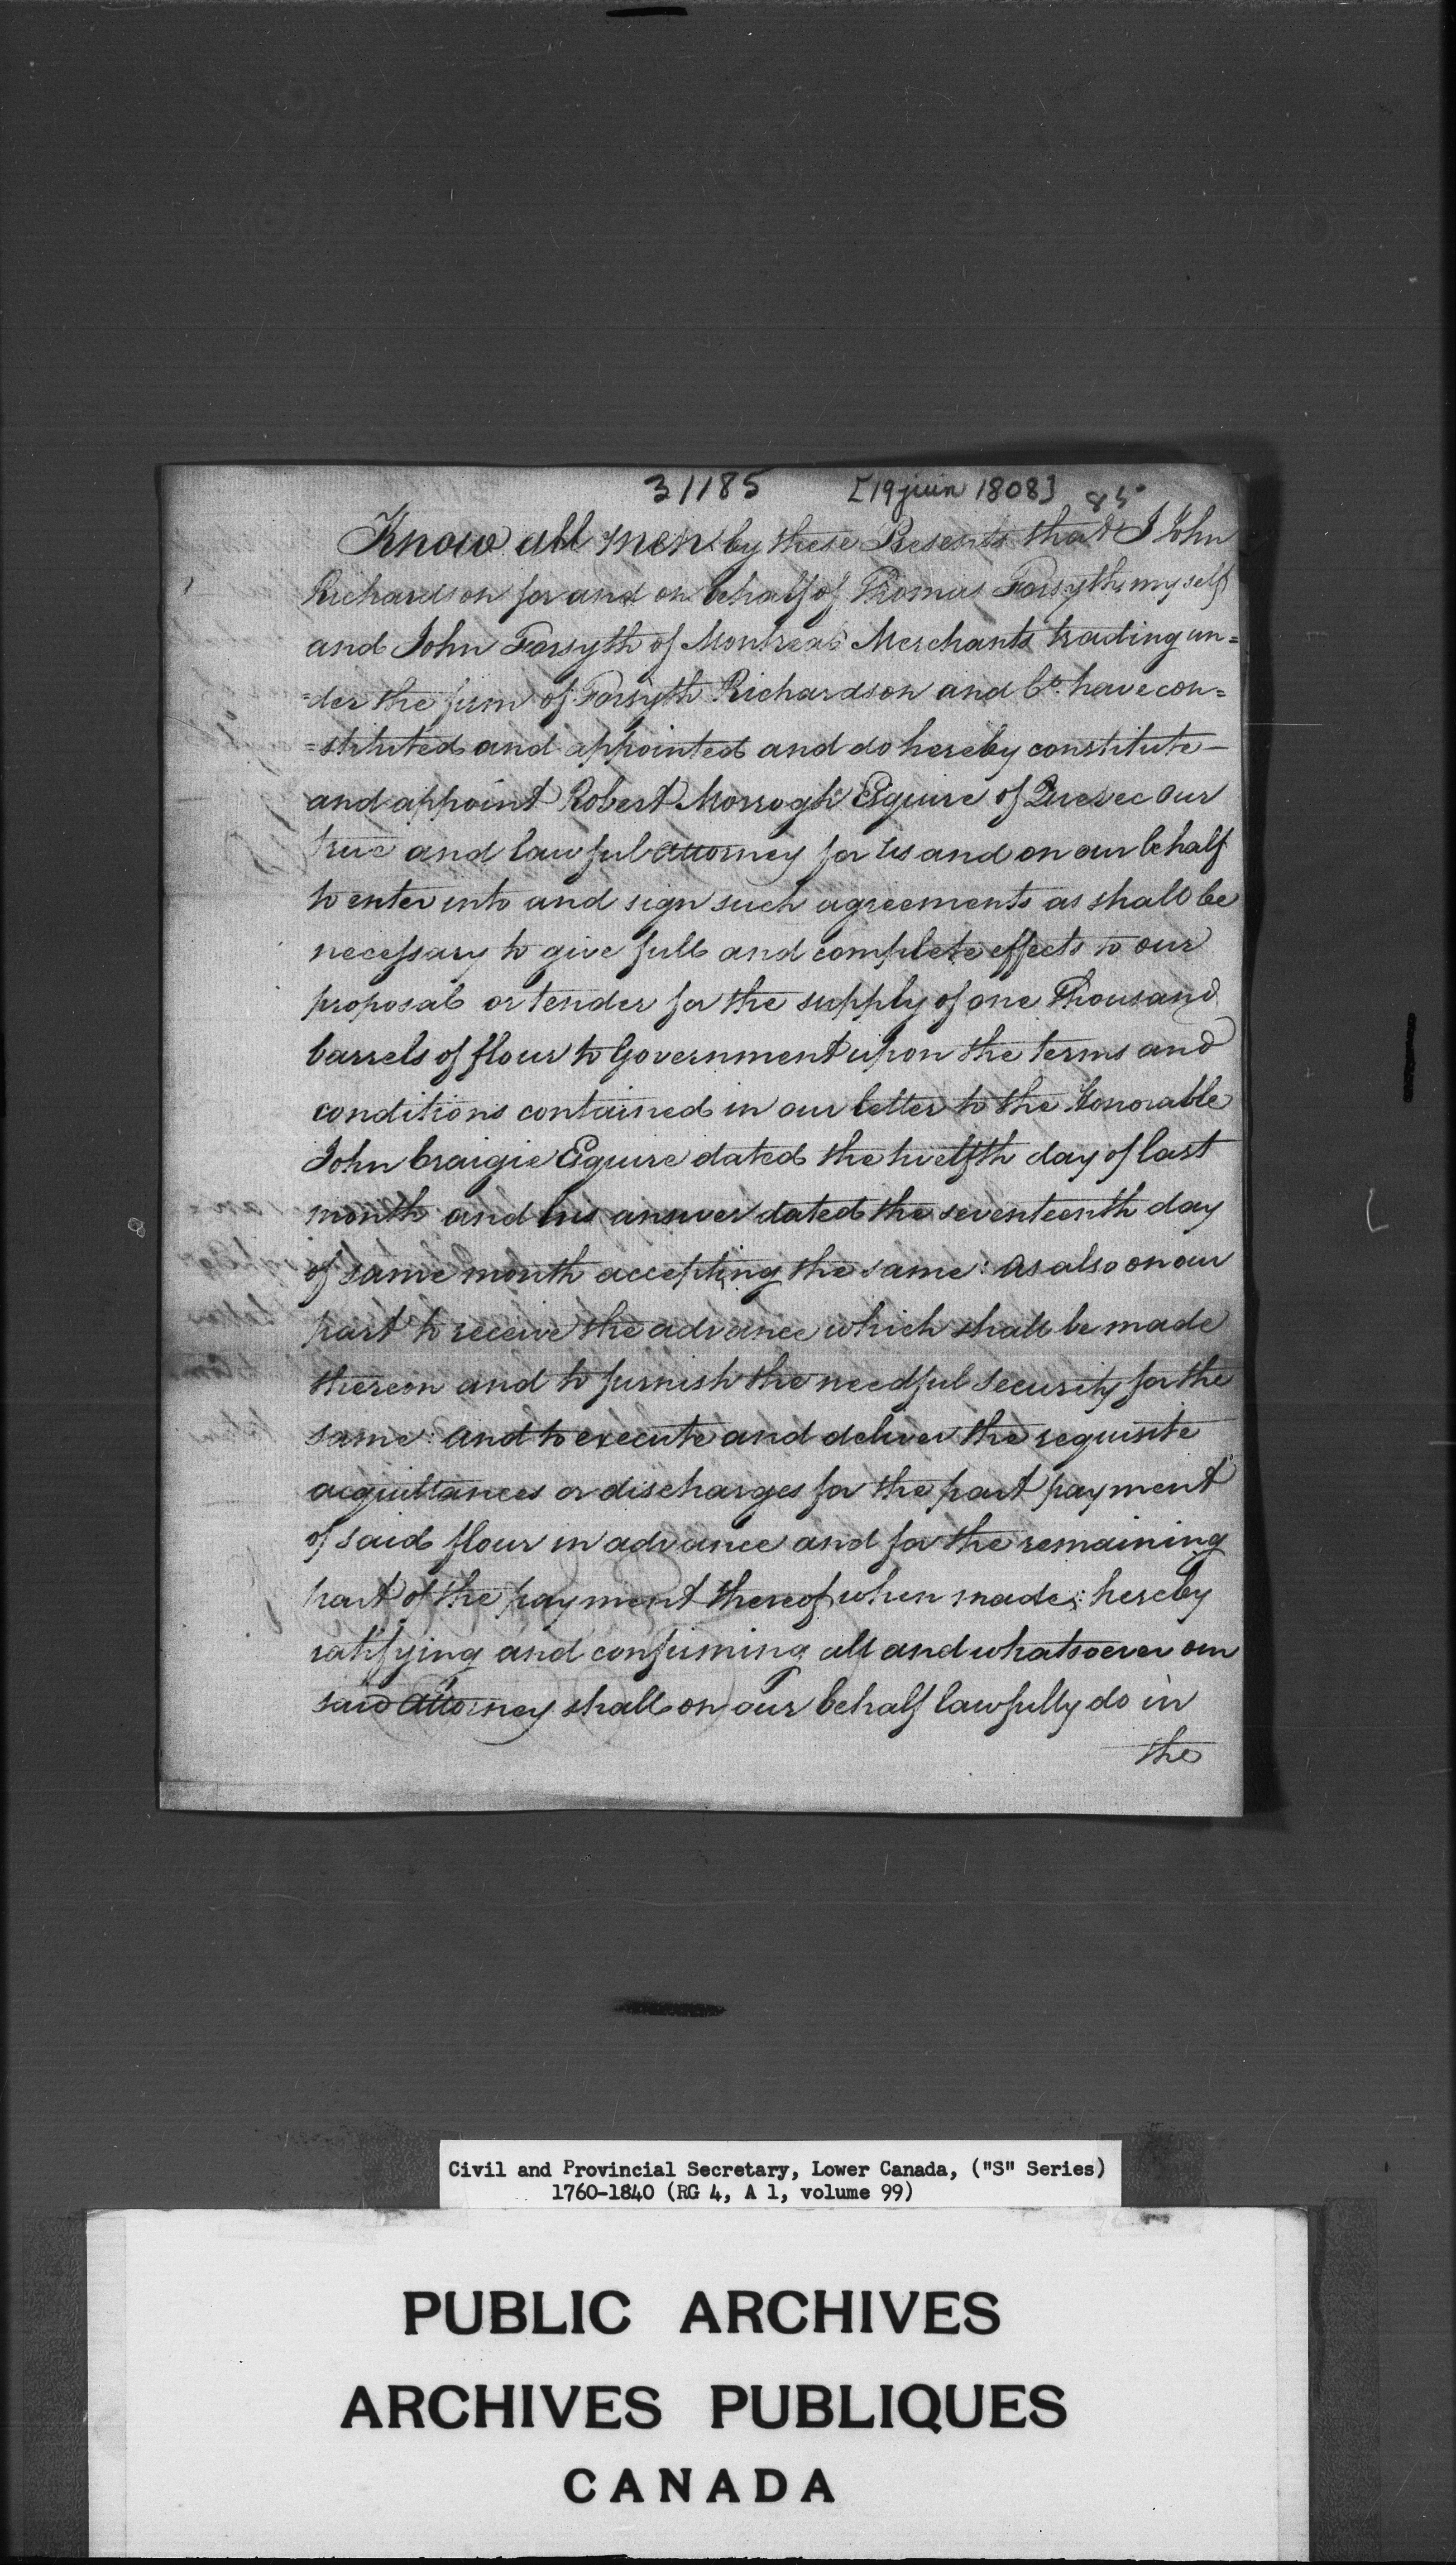 31185 [19 juin 1808] 85
Know all men by these Presents that I John
Richardson for and on behalf of Thomas Forsyth, myself
and John Forsyth of Montreal Merchants trading un=
=der the firm of Forsyth Richardson and Co. have con=
=stituted and appointed and do hereby constitute
and appoint Robert Morrogh Esquire of Quebec our
true and lawful attorney for us and on our behalf
to enter into and sign such agreements as shall be
necessary to give full and complete effects to our
proposal or tender for the supply of one Thousand
barrels of flour to Government upon the terms and
conditions contained in our letter to the Honorable
John Craigie Esquire dated the twelfth day of last
month and his answer dated the seventeenth day
of same month accepting the same: as also on our
part to receive the advance which shall be made
thereon and to furnish the needful security for the
same: and to execute and deliver the requisite
acquittances or discharges for the part payment
of said flour in advance and for the remaining
part of the payment thereof when made; hereby
ratifying and confirming all and whatsoever our
said attorney shall on our behalf lawfully do in
the
Civil and Provincial Secretary, Lower Canada, ("S" Series)
1760-1840 (RG 4, A 1, volume 99)
PUBLIC ARCHIVES
ARCHIVES PUBLIQUES
CANADA